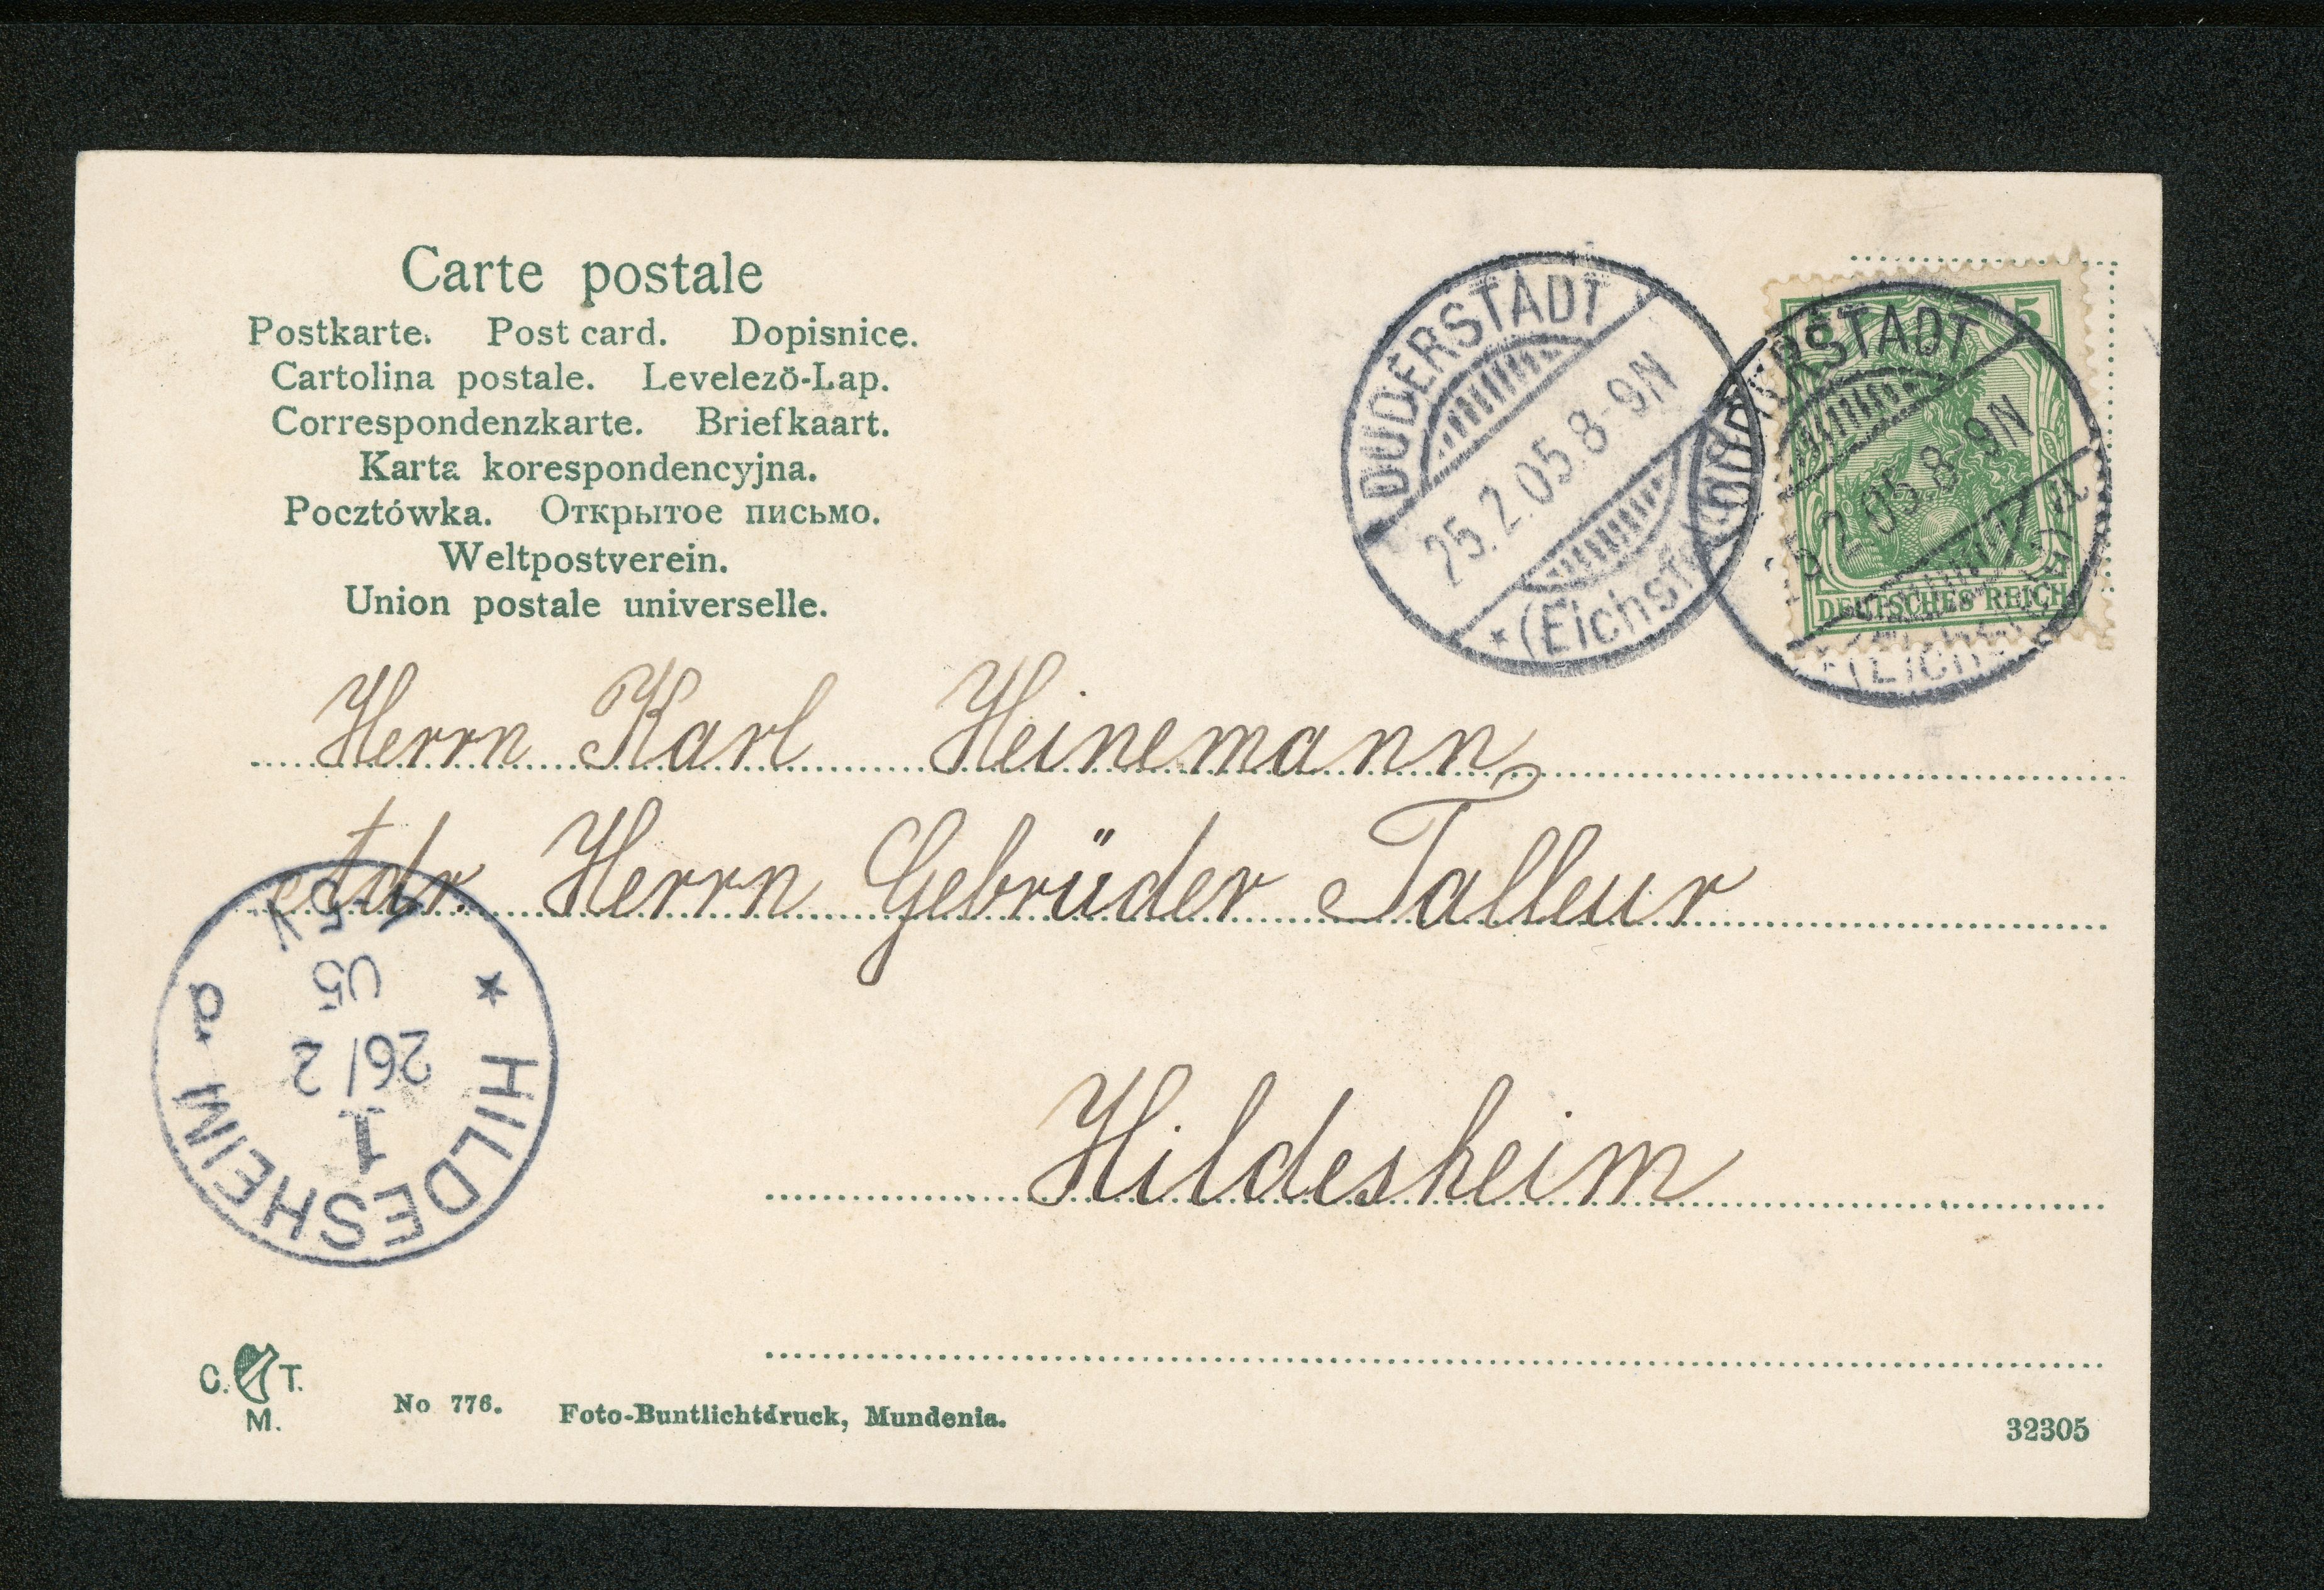 Carte postale
Postkarte. Post card. Dopisnice.
Cartolina postale. Levelezö-Lap.
Correspondenzkarte. Briefkaart.
Karta korespondencyjna.
Pocztówka. Открытое письмо.
Weltpostverein.
Union postale universelle.
DUDERSTADT
25.2.05.8-9N
*(Eichsf
5
DUDERSTADT
25.2.05.8-9N
DEUTSCHES REICH
Herrn Karl Heinemann,
Adr. Herrn Gebrüder Talleur
Hildesheim
* HILDESHEIM a
1
26/2
05
C. T.
M.
No 776. Foto-Buntlichtdruck, Mundenia.
32305